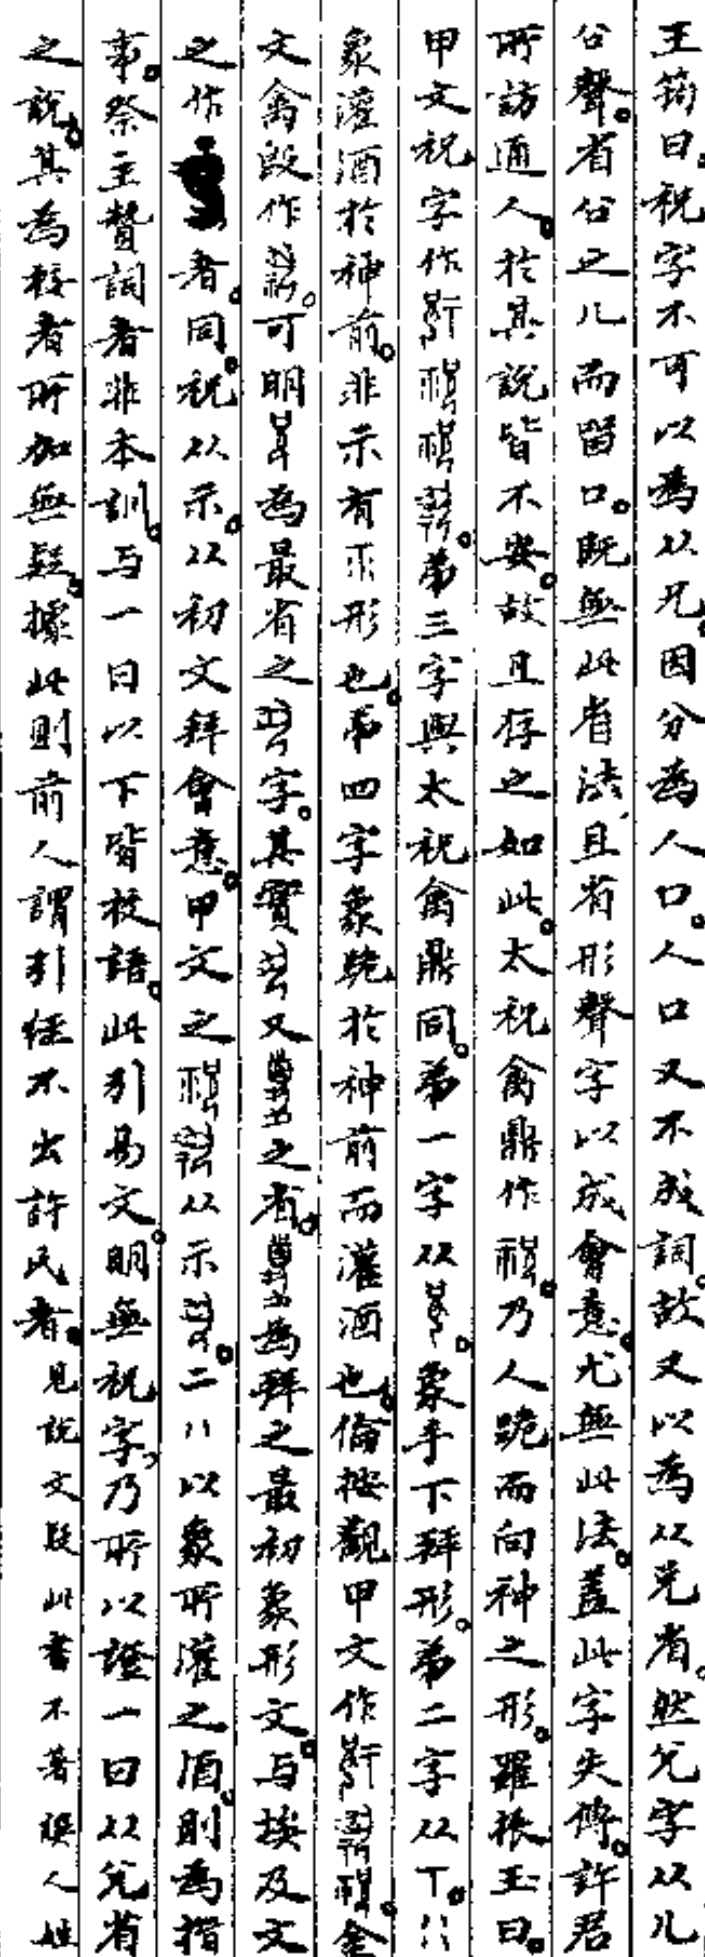 王筠曰。祝字不可以為从兄。因分為人口。人口又不成詞。故又以為从兌省。然兌字从儿
㕣聲。省㕣之儿而留口。既無此省法、且省形聲字以成會意。尤無此法。蓋此字失傳。許君
所訪通人。於其說皆不安。故且存之如此。太祝禽鼎作。乃人跪而向神之形。羅振玉曰。
甲文祝字作。第三字與太祝禽鼎同。第一字从。象手下拜形。第二字从丅。
象灌酒於神前。非示有形也。第四字象跪於神前而灌酒也。倫按觀甲文作。金
文禽𣪘作。可明為最省之字。其實又之省。為拜之最初象形文。与埃及文
之作者同。祝从示。从初文拜會意。甲文之从示。二八以象所灌之酒。則為指
事。祭主贊詞者非本訓。与一曰以下皆校語。此引易文。明無祝字、乃所以證一曰从兌省
之說。其為校者所加無疑。據此則前人謂引經不出許氏者。見說文疑此書不著撰人姓